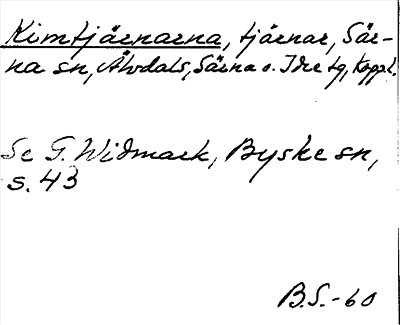 Kimtjärnarna, tjärnar, Sär-
na sn, Älvdals, Särna o. Idre tg, Koppl.
Se G. Widmark, Byske sn,
s. 43
B.S.-60